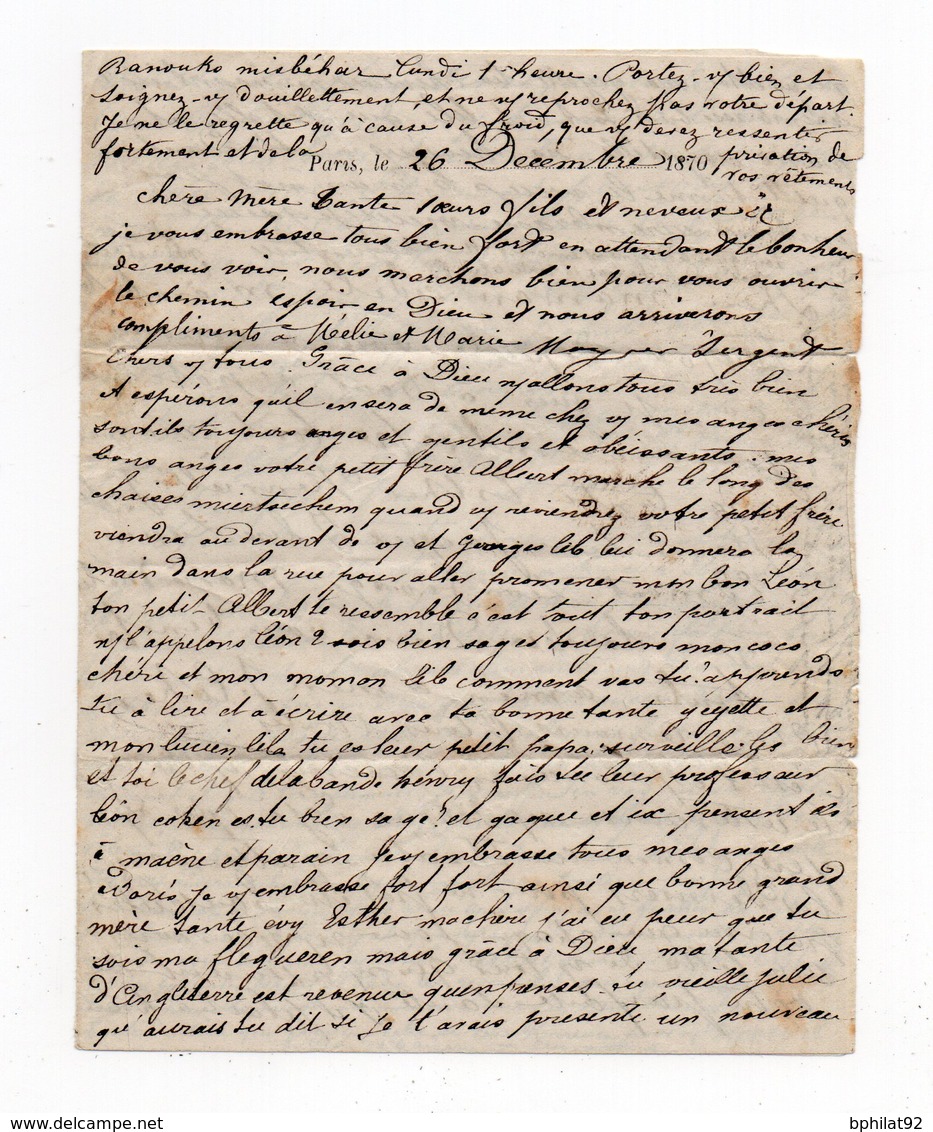 Ranouko misbéhar lundi 1 heure. Portez-vs bien et
soignez-vs douillettement, et ne vs reprochez pas votre départ.
Je ne le regrette qu'à cause du froid, que vs devez ressentir
fortement et de la privation de
vos vêtements
Paris, le 26 Decembre 1870
chère mère tante sœurs fils et neveux
je vous embrasse tous bien fort en attendant le bonheur
de vous voir, nous marchons bien pour vous ouvrir
le chemin espoir en Dieu et nous arriverons
compliments à Mélie et Marie Sergent
Chers vs tous. Grâce à Dieu ns allons tous très bien
et espérons qu'il en sera de même chez vs mes anges chéris
sont ils toujours anges et gentils et obéissants. mes
bons anges votre petit frère Albert marche le long des
chaises miertsechem quand vs reviendrez votre petit frère
viendra au devant de vs et Georges lili lui donnera la
main dans la rue pour aller promener mon bon Léon
ton petit Albert te ressemble c'est tout ton portrait
ns l'appelons léon 2 sois bien sage toujours mon coco
chéri et mon momon lili comment vas tu? apprends
tu à lire et à écrire avec ta bonne tante yeyette et
mon lucien lila tu es leur petit papa, surveille-les bien
et toi le chef de la bande hénry fais tu leur professeur
léon cohen es-tu bien sage? et gague et ix pensent ils
à maène et parain je vs embrasse tous mes anges
Paris je vs embrasse fort fort ainsi que bonne grand
mère tante évy Esther ma chère j'ai eu peur que tu
sois ma flegueren mais grâce à Dieu, ma tante
d'Angleterre est revenue qu'en penses-tu vieille julie
qu'aurais tu dit si je t'avais présenté un nouveau
bphilat92